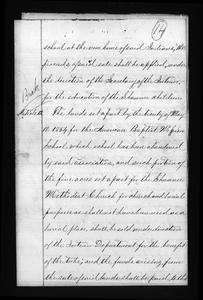 14
school at the new home of said Indians, the
proceeds of said sale shall be applied, under
the direction of the Secretary of the Interior,
for the education of the Shawnee children.
The lands set apart by the treaty of May
10. 1854 for the American Baptist Mission
School, which school has been abandoned
by said association, and such portion of
the five acres set apart for the Shawnee
Methodist Church for church and burial
purposes as shall not have been used as a
burial place, shall be sold under direction
of the Interior Department for the benefit
of the tribe; and the funds arising from
the sales of said lands shall be paid to the